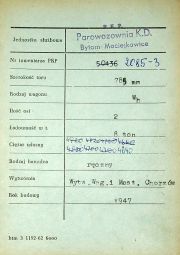 P K P
Jednostka służbowa
Parowozownia K.D.
Bytom Maciejkowice
Nr inwentarza PKP 50436 2085-3
Szerokość toru 785 mm
Rodzaj wagonu Wh
Ilość osi 2
Ładowność w t 8 ton
Ciężar własny 4720
Rodzaj hamulca ręczny
Wytwórnia Wytw.Wag.i Most. Chorzów
Rok budowy 1947